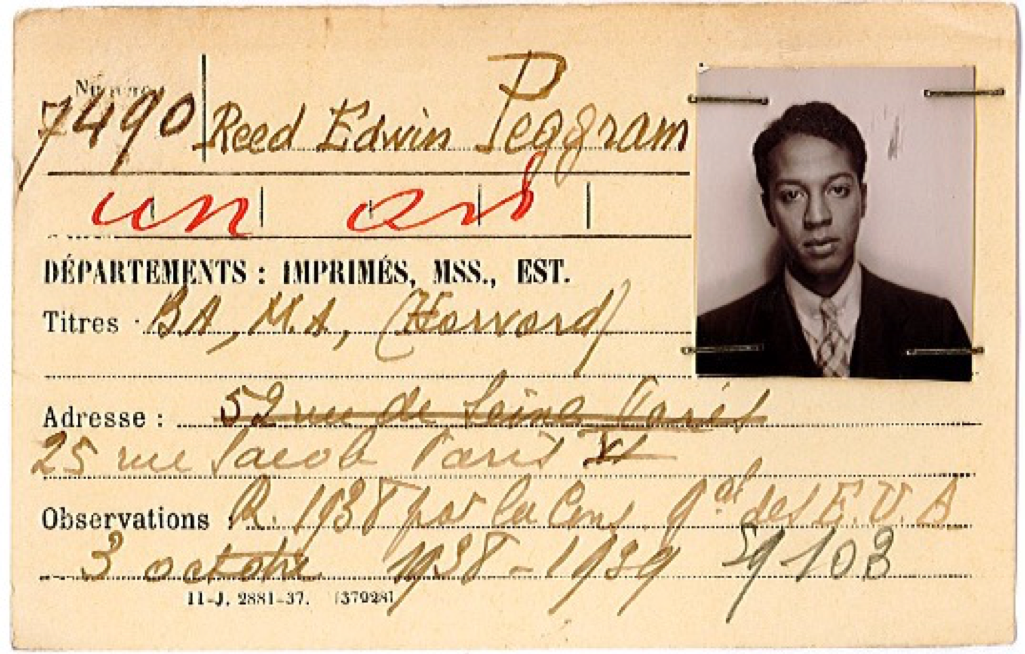 Numéro
7490 Reed Edwin Peagram
un an
DÉPARTEMENTS : IMPRIMÉS, MSS., EST.
Titres : BA, M.A, (Harvard)
Adresse : 52 rue de Seine Paris
25 rue Jacob Paris VI
Observations : R. 1938 par le Cons. gal des E.U.A
3 octobre 1938 - 1939 59103
11-J. 2881-37. (37928)